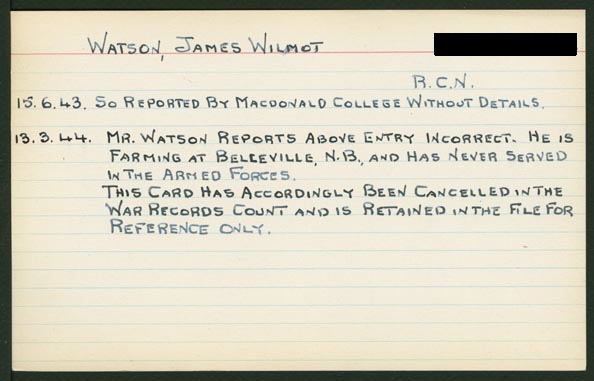 WATSON, JAMES WILMOT
R.C.N.
15.6.43. SO REPORTED BY MACDONALD COLLEGE WITHOUT DETAILS.
13.3.44. MR. WATSON REPORTS ABOVE ENTRY INCORRECT. HE IS
FARMING AT BELLEVILLE, N.B., AND HAS NEVER SERVED
IN THE ARMED FORCES.
THIS CARD HAS ACCORDINGLY BEEN CANCELLED IN THE
WAR RECORDS COUNT AND IS RETAINED IN THE FILE FOR
REFERENCE ONLY.